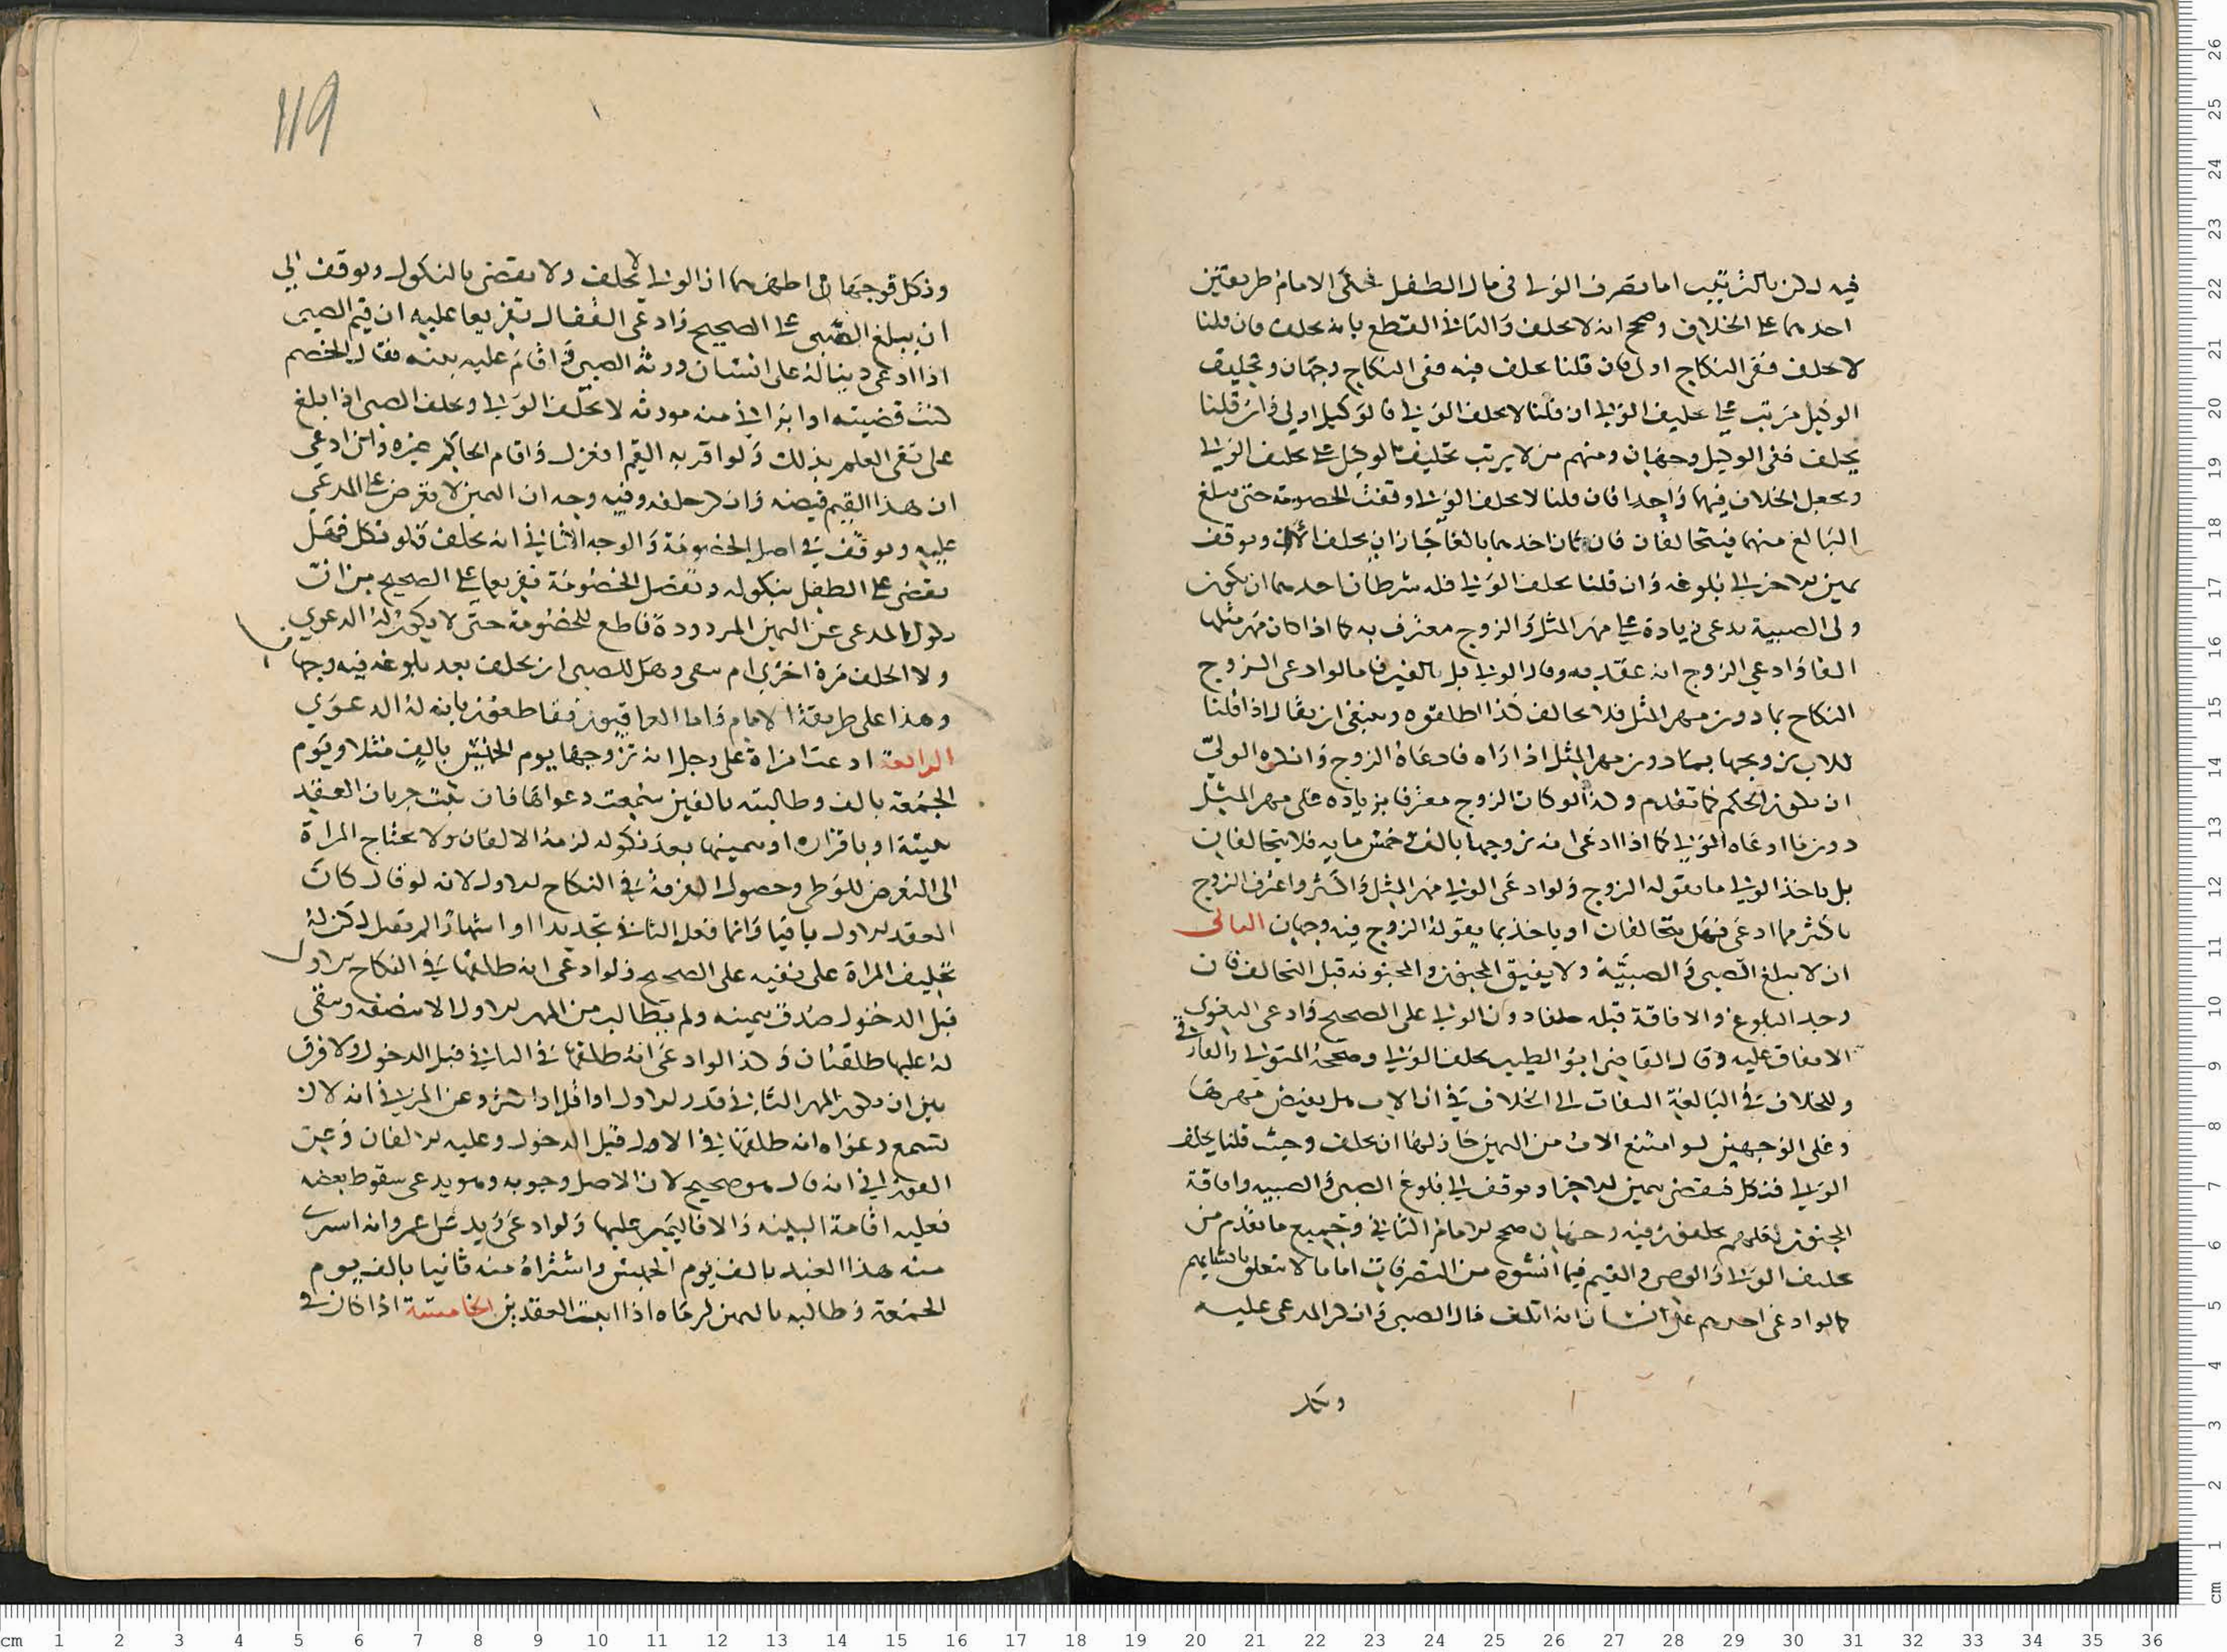 فيه لكن بالترتيب اما تصرف الولي في مال الطفل فحكى الامام طريقين
احدهما على الخلاف وصحح انه لا يحلف والثاني القطع بانه يحلف فان قلنا
لا يحلف ففي النكاح اولى فان قلنا يحلف فيه ففي النكاح وجهان وتحليف
الوكيل مرتب على تحليف الولي ان قلنا لا يحلف الولي فالوكيل اولى وان قلنا
يحلف ففي الوكيل وجهان ومنهم من لا يرتب تحليف الوكيل على تحليف الولي
ويجعل الخلاف فيهما واحدا فان قلنا لا يحلف الولي وقفت الخصومة حتى يبلغ
البالغ منهما فيتحالفان فان كان احدهما بالغا جاز ان يحلف الان ويوقف
يمين الاخر الى بلوغه وان قلنا يحلف الولي فله شرطان احدهما ان يكون
ولي الصبية يدعي زيادة على مهر المثل والزوج معترف به كما اذا كان مهر مثلها
الفا وادعى الزوج انه عقد به وقال الولي بل بالفين فاما لو ادعى الزوج
النكاح بما دون مهر المثل فلا تحالف كذا اطلقوه وينبغي ان يقال اذا قلنا
للاب تزويجها بما دون مهر المثل اذا راه فادعاه الزوج وانكره الولي
ان يكون الحكم كما تقدم وكذا لو كان الزوج معترفا بزيادة على مهر المثل
دون ما ادعاه الولي كما اذا ادعى انه تزوجها بالف وخمس مايه فلا يتحالفان
بل ياخذ الولي ما يقوله الزوج ولو ادعى الولي مهر المثل او اكثر واعترف الزوج
باكثر مما ادعى فهل يتحالفان او ياخذ بما يقوله الزوج فيه وجهان الثاني
ان لا يبلغ الصبي والصبية ولا يفيق المجنون والمجنونه قبل التحالف فان
وجد البلوغ والافاقة قبله حلفا دون الولي على الصحيح وادعى البغوي
الاتفاق عليه وقال القاضي ابو الطيب يحلف الولي وصححه المتولي
وللخلاف في البالغة التفات الى الخلاف في ان الاب هل يقبض مهرها
وعلى الوجهين لو امتنع الاب من اليمين جاز لها ان تحلف وحيث قلنا يحلف
الولي فنكل فيقضى بيمين الاخر او يوقف الى بلوغ الصبي والصبيه وافاقة
المجنون فيه وجهان صحح الامام الثاني وجميع ما تقدم من
تحليف الولي والوصي والقيم فيما انشوه من التصرفات اما ما لا يتعلق بانشايهم
كما لو ادعى احدهم على انسان انه اتلف مال الصبي وانكر المدعى عليه
ونكل
119
ونكل فوجهان اظهرهما ان الولي لا يحلف ولا يقضى بالنكول ويوقف الى
ان يبلغ الصبي على الصحيح وادعى القفال تفريعا عليه ان قيم الصبي
اذا ادعى دينا له على انسان ورثه الصبي واقام عليه بينه فقال الخصم
كنت قضيته او ابراني منه مورثه لا يحلف الولي ويحلف الصبي اذا بلغ
على نفي العلم بذلك ولو اقر به القيم انعزل واقام الحاكم غيره وان ادعى
ان هذا القيم قبضه وانكر حلف وفيه وجه ان اليمين لا تعرض على المدعى
عليه ويوقف في اصل الخصومة والوجه الثاني انه يحلف فلو نكل فهل
يقضى على الطفل بنكوله وتفصل الخصومة تفريعا على الصحيح من ان
نكول المدعي عن اليمين المردودة قاطع للخصومة حتى لا يكون له الدعوي
ولا الحلف مرة اخرى ام يبقى وهل للصبي ان يحلف بعد بلوغه فيه وجهان
وهذا على طريقة الامام واما العراقيون فقاطعون بانه له الدعوي
الرابعة ادعت امراة على رجل انه تزوجها يوم الخميس بالف مثلا ويوم
الجمعة بالف وطالبته بالفين سمعت دعواها فان ثبت جريان العقد
ببينة او باقراره او بيمينها بعد نكوله لزمه الالفان ولا تحتاج المراة
الى التعرض للوطي وحصول الفرقة في النكاح الاول لانه لو قال كان
العقد الاول باقيا وانما فعل الثاني تجديدا او اشهارا لم تقبل لكن له
تحليف المراة على نفيه على الصحيح ولو ادعى انه طلقها في النكاح الاول
قبل الدخول صدق بيمينه ولم يطالب من المهر الاول الا بنصفه ويبقى
له عليها طلقتان وكذا لو ادعى انه طلقها في الثاني قبل الدخول ولا فرق
بين ان يكون المهر الثاني قدر الاول او اقل او اكثر وعن المزني انه لا
تسمع دعواه انه طلقها في الاول قبل الدخول وعليه الالفان وعن
انه قال هو صحيح لان الاصل وجوبه وهو يدعي سقوط بعضه
فعليه اقامة البينه والا فاليمين عليها ولو ادعى زيد على عمرو انه اشترى
منه هذا العبد بالف يوم الخميس واشتراه منه ثانيا بالف يوم
الجمعة وطالبه بالثمنين لزماه اذا اثبت العقدين الخامسة اذا كان في